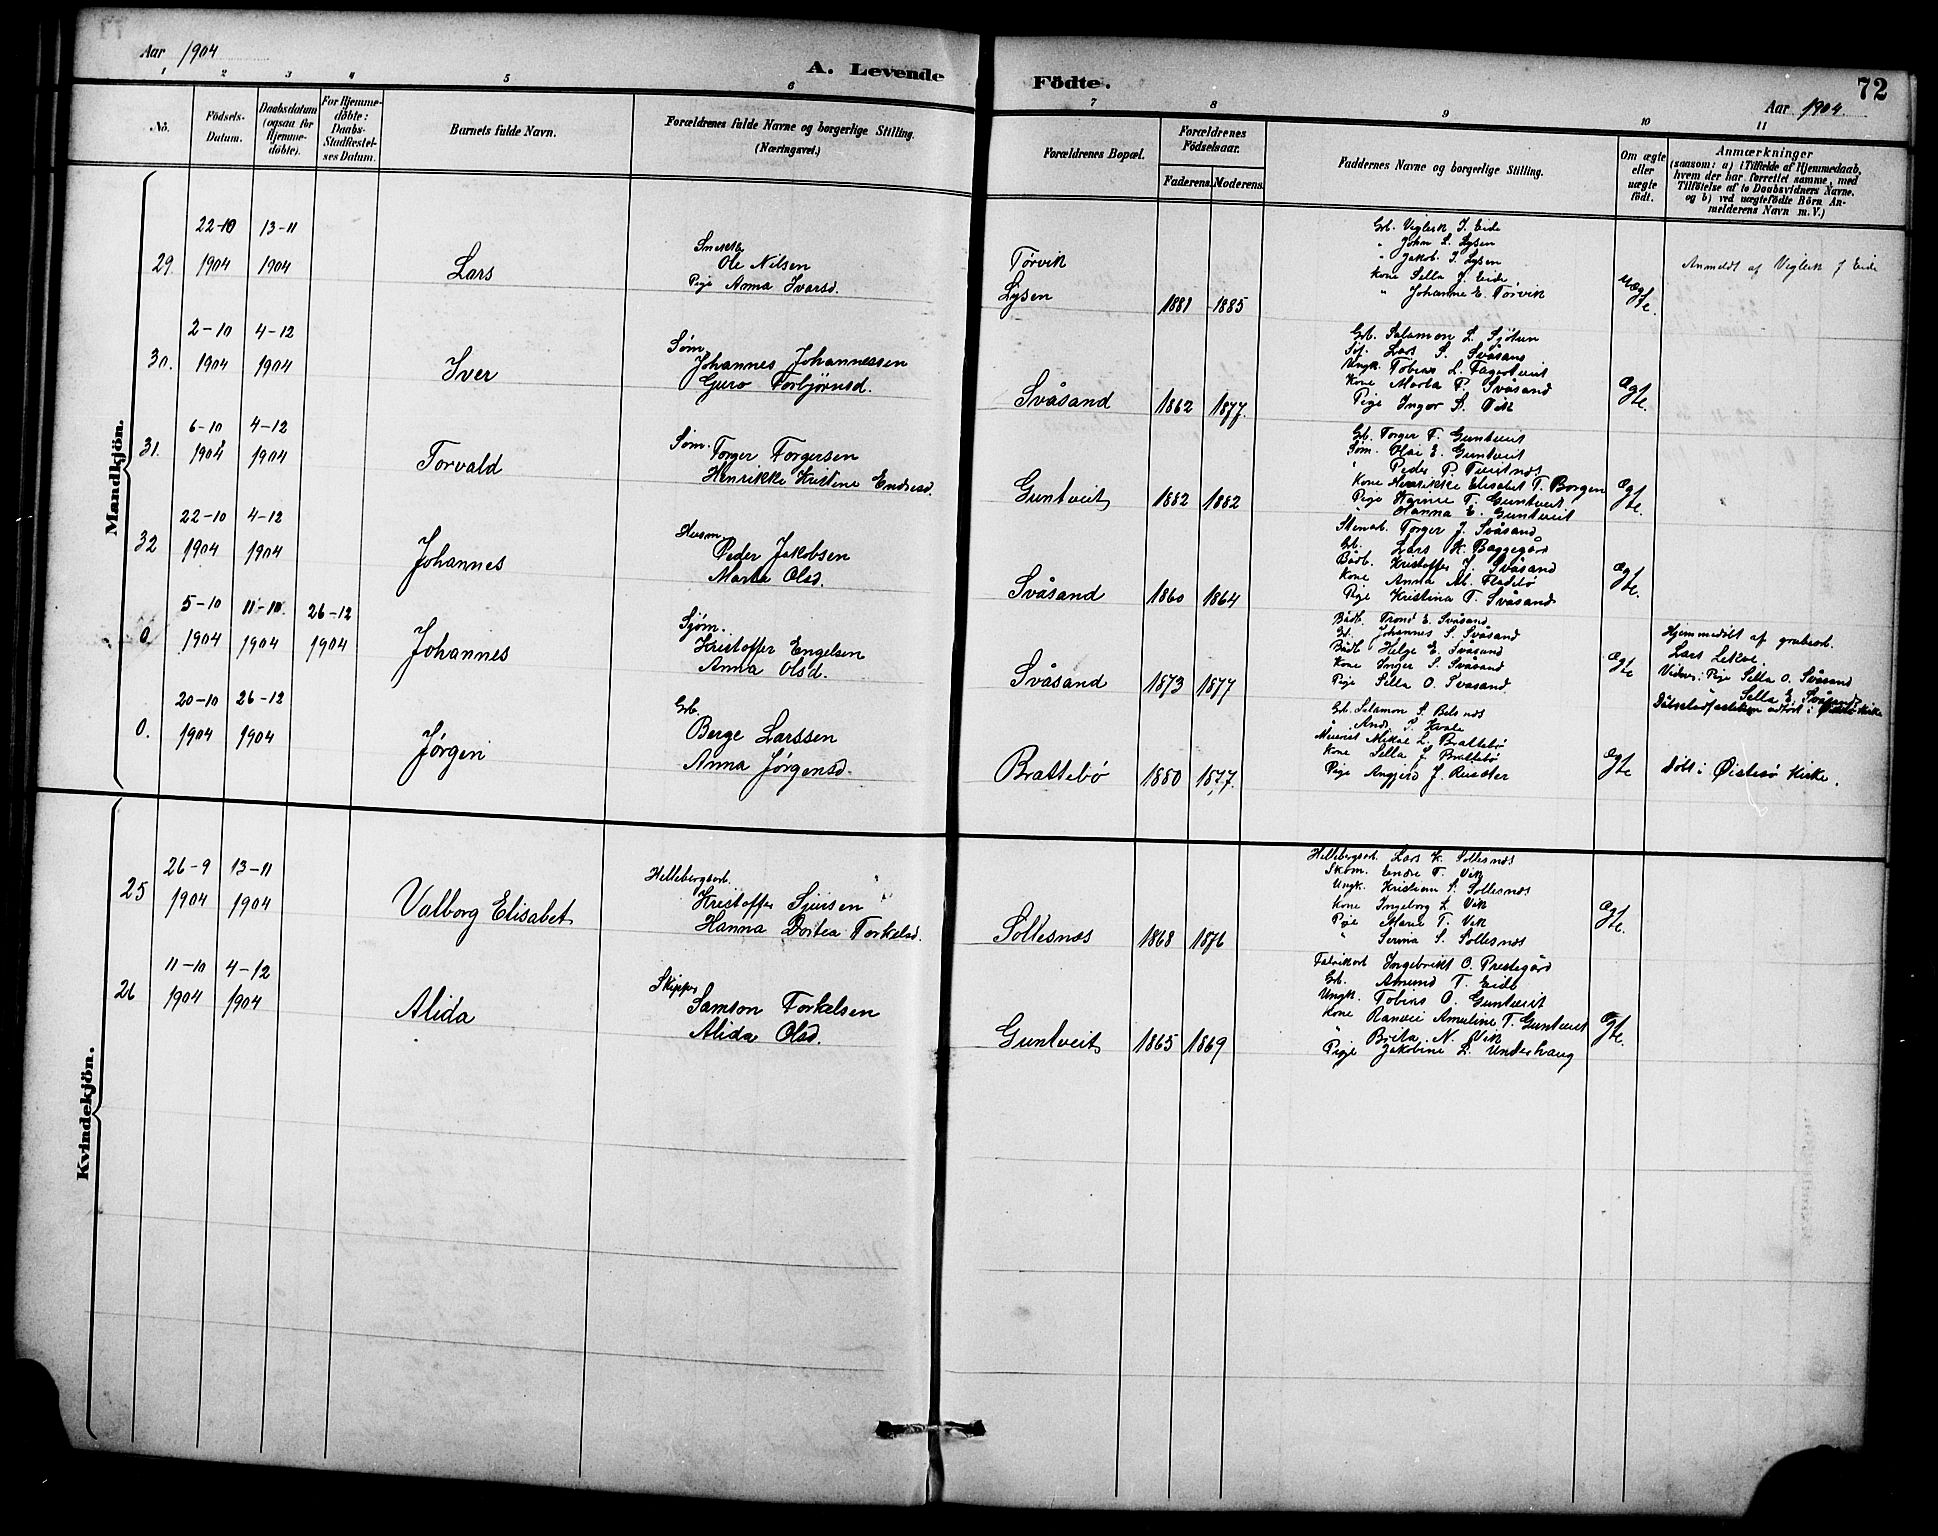 Aar 1904
A. Levende
Födte.
72
Aar 1904.
1 2 3 4 5 6 7 8 9 10 11
No.
Födsels-
Datum.
Daabsdatum
(ogsaa for
Hjemme-
döbte).
For Hjemme-
döbte:
Daabs-
Stadfæstel-
ses Datum.
Barnets fulde Navn.
Forældrenes fulde Navne og borgerlige Stilling.
(Næringsvei.)
Forældrenes Bopæl.
Forældrenes
Födselsaar.
Faderens. Moderens.
Faddernes Navne og borgerlige Stilling.
Om ægte
eller
uægte
födt.
Anmærkninger
(saasom: a) i Tilfælde af Hjemmedaab,
hvem der har forrettet samme, med
Tilföielse af to Daabsvidners Navne,
og b) ved uægtefödte Börn An-
melderens Navn m. V.)
Mandkjön.
29.
22-10
1904
13-11
1904
Lars
Ole Nilsen
Pige Anna Ivarsd.
Tørvik
Lysen
1881 1885
Gb. Viglek J. Eide
" John L. Lysen
" Jakob J. Lysen
Kone Sella J. Eide
" Johanne E. Tørvik
uægte.
Anmeldt af Viglek J Eide
30.
2-10
1904
4-12
1904
Iver
Søm.
Johannes Johannessen
Guro Torbjørnsd.
Svåsand
1862 1877.
Gb. Salamon L.
Lars S. Svåsand
Ungk. Tobias L. Fagertveit
Kone Marta P. Svåsand
Pige Inger S. Vik
Ægte.
31.
6-10
1904
4-12
1904
Torvald
Søm.
Torger Torgersen
Henrikke Kristine Endresd.
Guntveit
1882 1882
Gb. Torger T. Guntveit
Søm. Olai E. Guntveit
" Peder P. Tveitnæs
Kone Henrikke Elisabet T. Borgen
Pige Karine T. Guntveit
" Hanna E. Guntveit
Ægte.
32
22-10
1904
4-12
1904
Johannes
Husm.
Peder Jakobsen
Marta Olsd.
Svåsand
1860 1864
Stenarb. Torger J. Svåsand
Gb. Lars K. Baggegård
Bådb. Kristoffer J. Svåsand
Kone Anna M. Fladebø
Pige Kristina T. Svåsand
Ægte.
0
5-10
1904
11-10.
1904
26-12
1904
Johannes
Sjøm.
Kristoffer Engelsen
Anna Olsd.
Svåsand
1873 1877
Bådb. Trond E. Svåsand
Gb. Johannes S. Svåsand
Bådb. Helge E. Svåsand
Kone Inger S. Svåsand
Pige Sella O. Svåsand
Ægte
Hjemmedøbt af grubearb.
Lars Lekve.
Vidner: Pige Sella O. Svåsand
" Sella E. Svåsand
Dåbstadfæstelsen udført i Østesø Kirke
0.
20-10
1904
26-12
1904
Jørgen
Gb.
Berge Larssen
Anna Jørgensd.
Brattebø
1880 1877.
Gb. Salamon S. Belsnes
" And. T. Kvale
Mikal L. Brattebø
Kone Sella J. Brattebø
Pige Angjerd J.
Ægte
døbt i Østesø Kirke.
Kvindekjön.
25
26-9
1904
13-11
1904
Valborg Elisabet
Hellebergsarb.
Kristoffer Sjursen
Hanna Dortea Torkelsd.
Soltesnæs
1868 1876
Hellebergsarb. Lars K. Soltesnæs
Skom. Endre T. Vik
Ungk. Kristian S. Soltesnæs
Kone Ingeborg L. Vik
Pige Marie T. Vik
" Serina S. Soltesnæs
Ægte.
26
11-10
1904
4-12
1904
Alida
Skipper
Samson Torkelsen
Alida Olsd.
Guntveit
1865 1869
Fabrikarb. Ingebrikt O. Prestegård
Gb. Amund T. Eide
Ungk. Tobias O. Guntveit
Kone Ranvei Amaline T. Guntveit
" Brita N. Vik
Pige Jakobine L. Underhaug
Ægte.